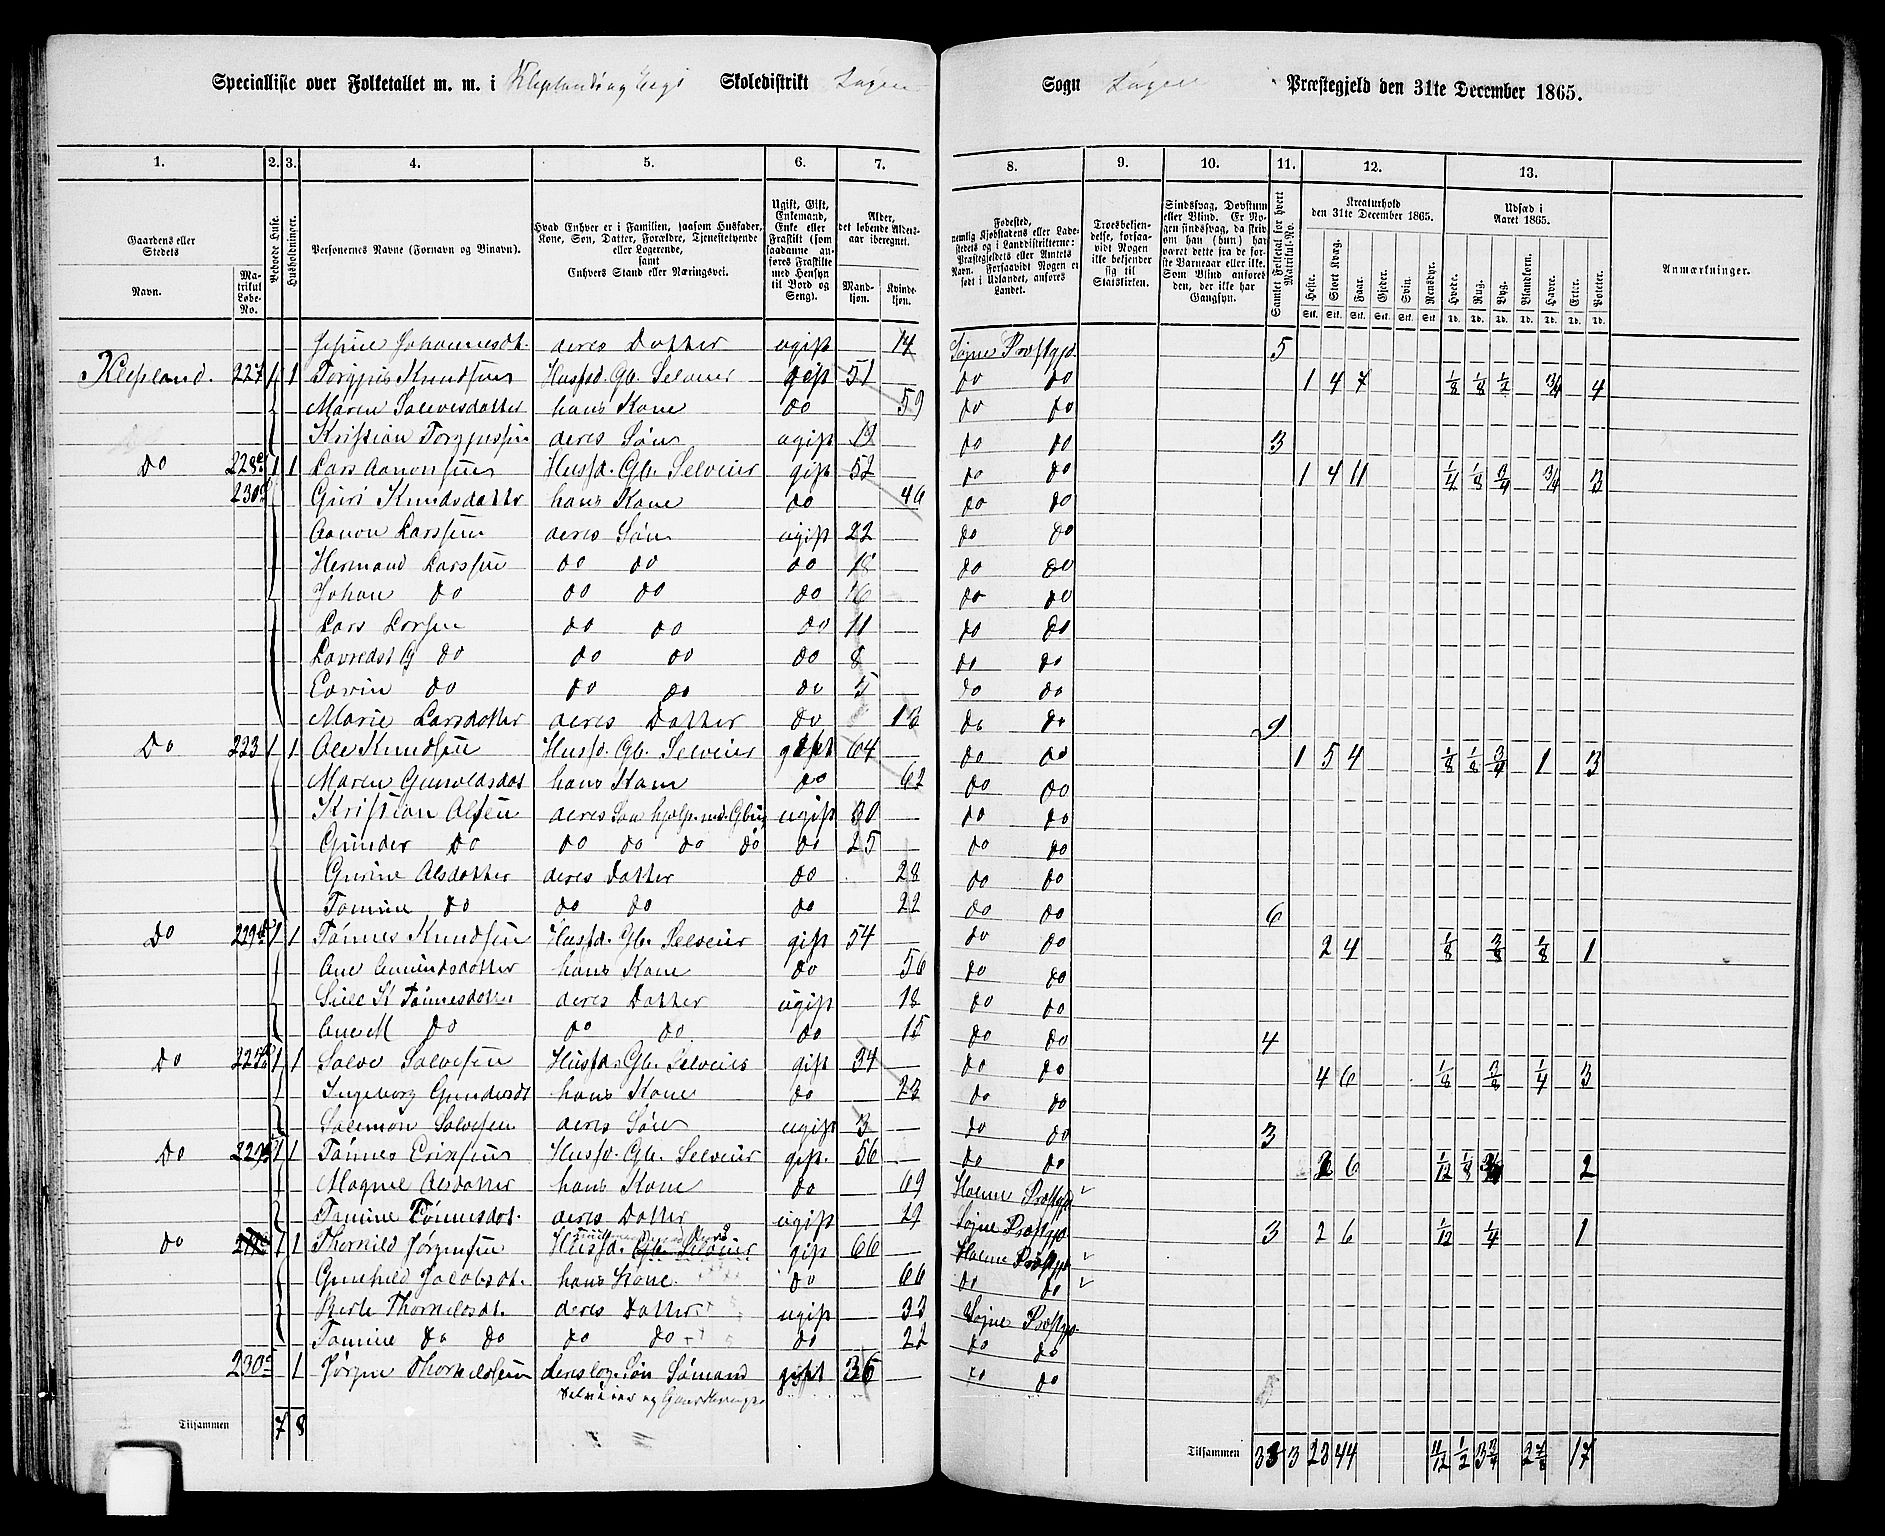 Specialliste over Folketallet m. m. i Kleplands og Skoledistrikt Søgne
Sogn Søgne Præstegjeld den 31te December 1865.
1. 2. 3. 4. 5. 6. 7.
8. 9. 10. 11. 12. 13.
Gaardens eller Stedets Navn. Matrikul Løbe-No. Beboede Huse. Husholdninger. Personernes Navne (Fornavn og Binavn). Hvad Enhver er i Familien, saasom Husfader, Kone, Søn, Datter, Forældre, Tjenestetyende eller Logerende, samt Enhvers Stand eller Næringsvei. Ugift, Gift, Enkemand, Enke eller Fraskilt (som saadanne anføres Fraskilte med Hensyn til Bord og Seng). Alder, det løbende Aldersaar iberegnet. Mandkjøn. Kvindekjøn.
Fødested, nemlig Kjøbstadens eller Ladestedets og i Landdistrikterne: Præstegjeldets eller Amtets Navn. Forsaavidt Nogen er født i Udlandet, anføres Landet. Troesbekjendelse, forsaavidt Nogen ikke bekjender sig til Statskirken. Sindssvag, Døvstum eller Blind. Er Nogen sindssvag, da skriv om han (hun) har været dette fra de første Barneaar eller ikke. Som Blind anføres den, der ikke har Gangsyn. Samlet Folketal for hvert Matrikul-No. Kreaturhold den 31te December 1865. Udsæd i Aaret 1865. Anmærkninger.
Heste. Stort Kvæg. Faar. Gjeder. Svin. Rensdyr. Hvede. Rug. Byg. Blandkorn. Havre. Erter. Poteter.
Stk. Stk. Stk. Stk. Stk. Stk. Td. Td. Td. Td. Td. Td. Td.
Johannesdt. deres Datter ugift 14 Søgne Præstgjd. 5
Klepland. 227 1 1 Torgjus Knudsen Husfd. Gb. Selveier gift 51 do do 1 4 7 1/8 1/8 1/2 3/4 4
Maren Salvesdatter hans Kone do 59 do do
Kristian Torgjussen deres Søn ugift 19 do do 3
do 228 1 1 Lars Aanonsen Husfd. Gb. Selveier gift 52 do do 1 4 11 1/4 1/8 3/4 3/4 3
230 Guri Knudsdatter hans Kone do 46 do do
Aanon Larssen deres Søn ugift 22 do do
Hermand Larssen do do do 18 do do
Johan do do do do 16 do do
Lars Larsen do do do 11 do do
do do do do 8 do do
Edvin do do do do 5 do do
Marie Larsdatter deres Datter do 13 do do 9
Do 223 1 1 Ole Knudsen Husfd. Gb. Selveier gift 64 do do 1 5 4 1/8 1/8 3/4 1 3
Maren Gunvoldsdat hans Kone do 62 do do
Kristian Olsen deres Søn hjelp. med Gbrug ugift 30 do do
Gunder do do do do do do 25 do do
Gurine Olsdatter deres Datter do 28 do do
Tomine do do do do 22 do do 6
Do 229 1 1 Tønnes Knudsen Husfd. Gb. Selveier gift 54 do do 2 4 1/8 3/8 1/8 1
Ane Amundsdatter hans Kone do 56 do do
Siell K Tønnesdatter deres Datter ugift 18 do do
Ane M do do do do 15 do do 4
Do 227 1 1 Salve Salvesen Husfd. Gb. Selveier gift 34 do do 4 6 1/8 3/8 1/4 3
Ingeborg Gundersdt hans Kone do 23 do do
Salemon Salvesen deres Søn ugift 3 do do 3
Do 229 1 1 Tønnes Eriksen Husfd. Gb. Selveier gift 56 do do 2 6 1/12 1/8 2
Magnel Olsdatter hans Kone do 69 Holme Præstgjd
Tomine Tønnesdat. deres Datter ugift 29 Søgne Præstgjd 3
do 1 1 Thorkild Jørgensen Husfd. Gb. Selveier gift 66 Holme Præstgjd 2 6 1/12 1/4 1
Gunhild Jacobsdt. hans Kone do 66 do do
Berte Thorkildsdt. deres Datter ugift 33 Søgne Præstgjd.
Tomine do do do do do 22 do do
230 1 Jørgen Thorkildsen deres Søn Sømand gift 36 do do
Selveier og
Tilsammen 7 8
Tilsammen 33 3 23 44 11/12 1/2 3 3/4 2 7/8 17